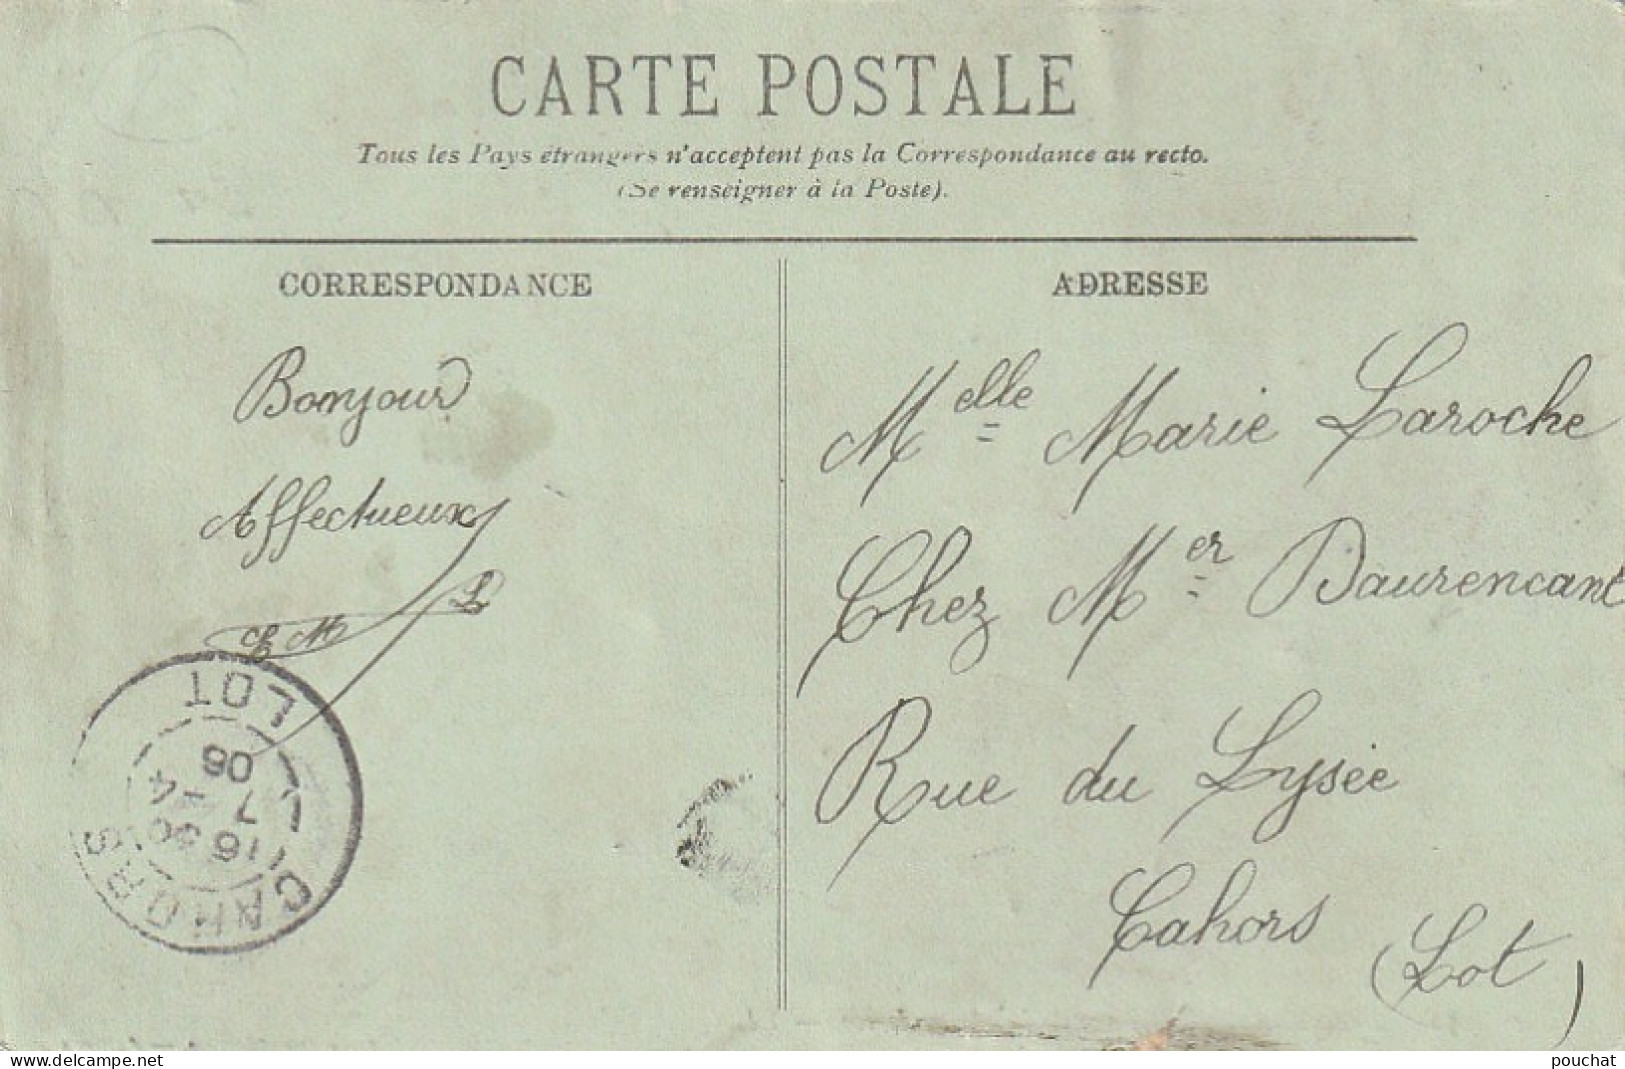 CARTE POSTALE
Tous les Pays étrangers n'acceptent pas la Correspondance au recto.
(Se renseigner à la Poste).
CORRESPONDANCE
ADRESSE
Bonjour
Affectueux
EML
Melle Marie Laroche
Chez Mer Baurencant
Rue du Lysée
Cahors
(Lot)
CAHORS
16 30
7 - 4
06
LOT
www.delcampe.net
pouchat